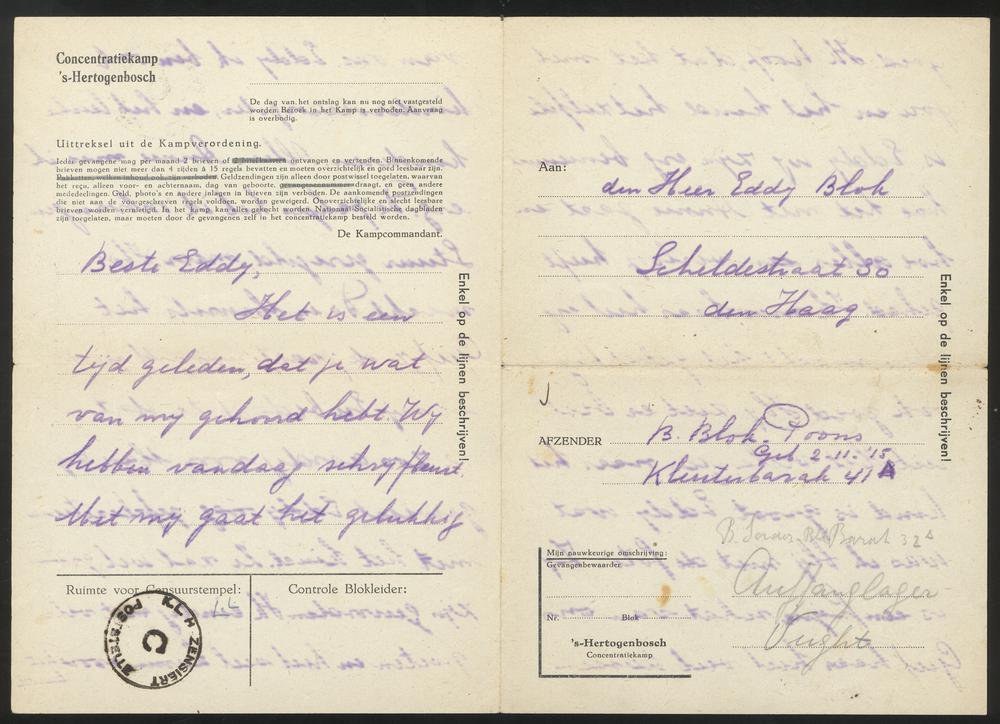 Concentratiekamp
's-Hertogenbosch
De dag van het ontslag kan nu nog niet vastgesteld
worden. Bezoek in het Kamp is verboden. Aanvraag
is overbodig.
Uittreksel uit de Kampverordening.
Ieder gevangene mag per maand 2 brieven of 2 briefkaarten ontvangen en verzenden. Binnenkomende
brieven mogen niet meer dan 4 zijden à 15 regels bevatten en moeten overzichtelijk en goed leesbaar zijn.
Pakketten, welken inhoud ook, zijn verboden. Geldzendingen zijn alleen door postwissel toegelaten, waarvan
het reçu, alleen voor- en achternaam, dag van geboorte, gevangenennummer draagt, en geen andere
mededeelingen. Geld, photo's en andere inlagen in brieven zijn verboden. De aankomende postzendingen
die niet aan de voorgeschreven regels voldoen, worden geweigerd. Onoverzichtelijke en slecht leesbare
brieven worden vernietigd. In het kamp kan alles gekocht worden. Nationaal-Socialistische dagbladen
zijn toegelaten, maar moeten door de gevangenen zelf in het concentratiekamp besteld worden.
De Kampcommandant.
Beste Eddy,
Het is een
tijd geleden, dat je wat
van mij gehoord hebt Wij
hebben vandaag schrijf
Met mij gaat het gelukkig
Enkel op de lijnen beschrijven!
Ruimte voor Censuurstempel:
Controle Blokleider:
K.L-H ZENSIERT
POSTSTELLE
C
Aan:
den Heer Eddy Blok
Scheldestraat 30
den Haag
Enkel op de lijnen beschrijven!
AFZENDER
B. Blok-Poons
Geb 2-11-'15
Kleuterbarak 41 A
Barak 32 A
Mijn nauwkeurige omschrijving:
Gevangenbewaarder
Auffanglager
Nr. Blok
Vught
's-Hertogenbosch
Concentratiekamp